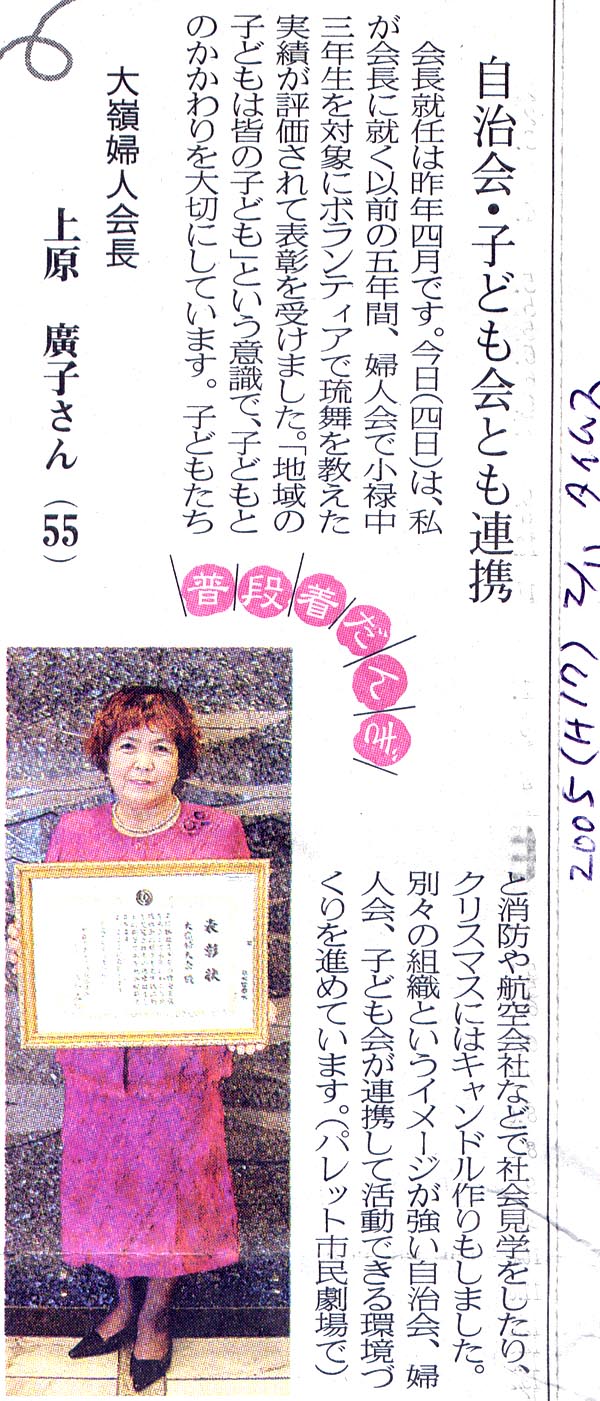 自治会・子ども会とも連携
会長就任は昨年四月です。今日(四日)は、私
が会長に就く以前の五年間、婦人会で小禄中
三年生を対象にボランティアで琉舞を教えた
実績が評価されて表彰を受けました。「地域の
子どもは皆の子ども」という意識で、子どもと
のかかわりを大切にしています。子どもたち
大嶺婦人会長
上原 廣子さん(55)
普段着だんで
と消防や航空会社などで社会見学をしたり、
クリスマスにはキャンドル作りもしました。
別々の組織というイメージが強い自治会、婦
人会、子ども会が連携して活動できる環境づ
くりを進めています。(パレット市民劇場で)
表彰状
大嶺婦人会 殿
2005(H17) 2/11 タイムス